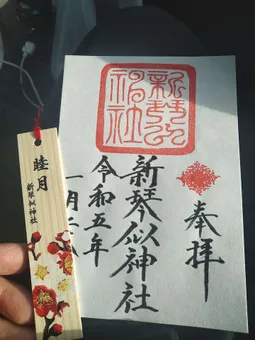 奉拝
新琴似
神社
新琴似神社
令和五年
一月二
睦月
新琴似神社